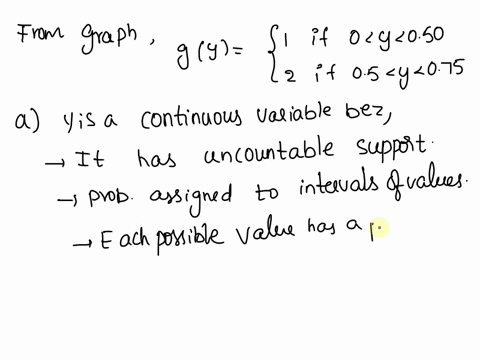 From graph, g(y) = { 1 if 0<y<0.50
2 if 0.5<y<0.75
a) y is a continuous variable bcz,
→ It has uncountable support.
→ prob. assigned to intervals of values.
→ Each possible value has a p